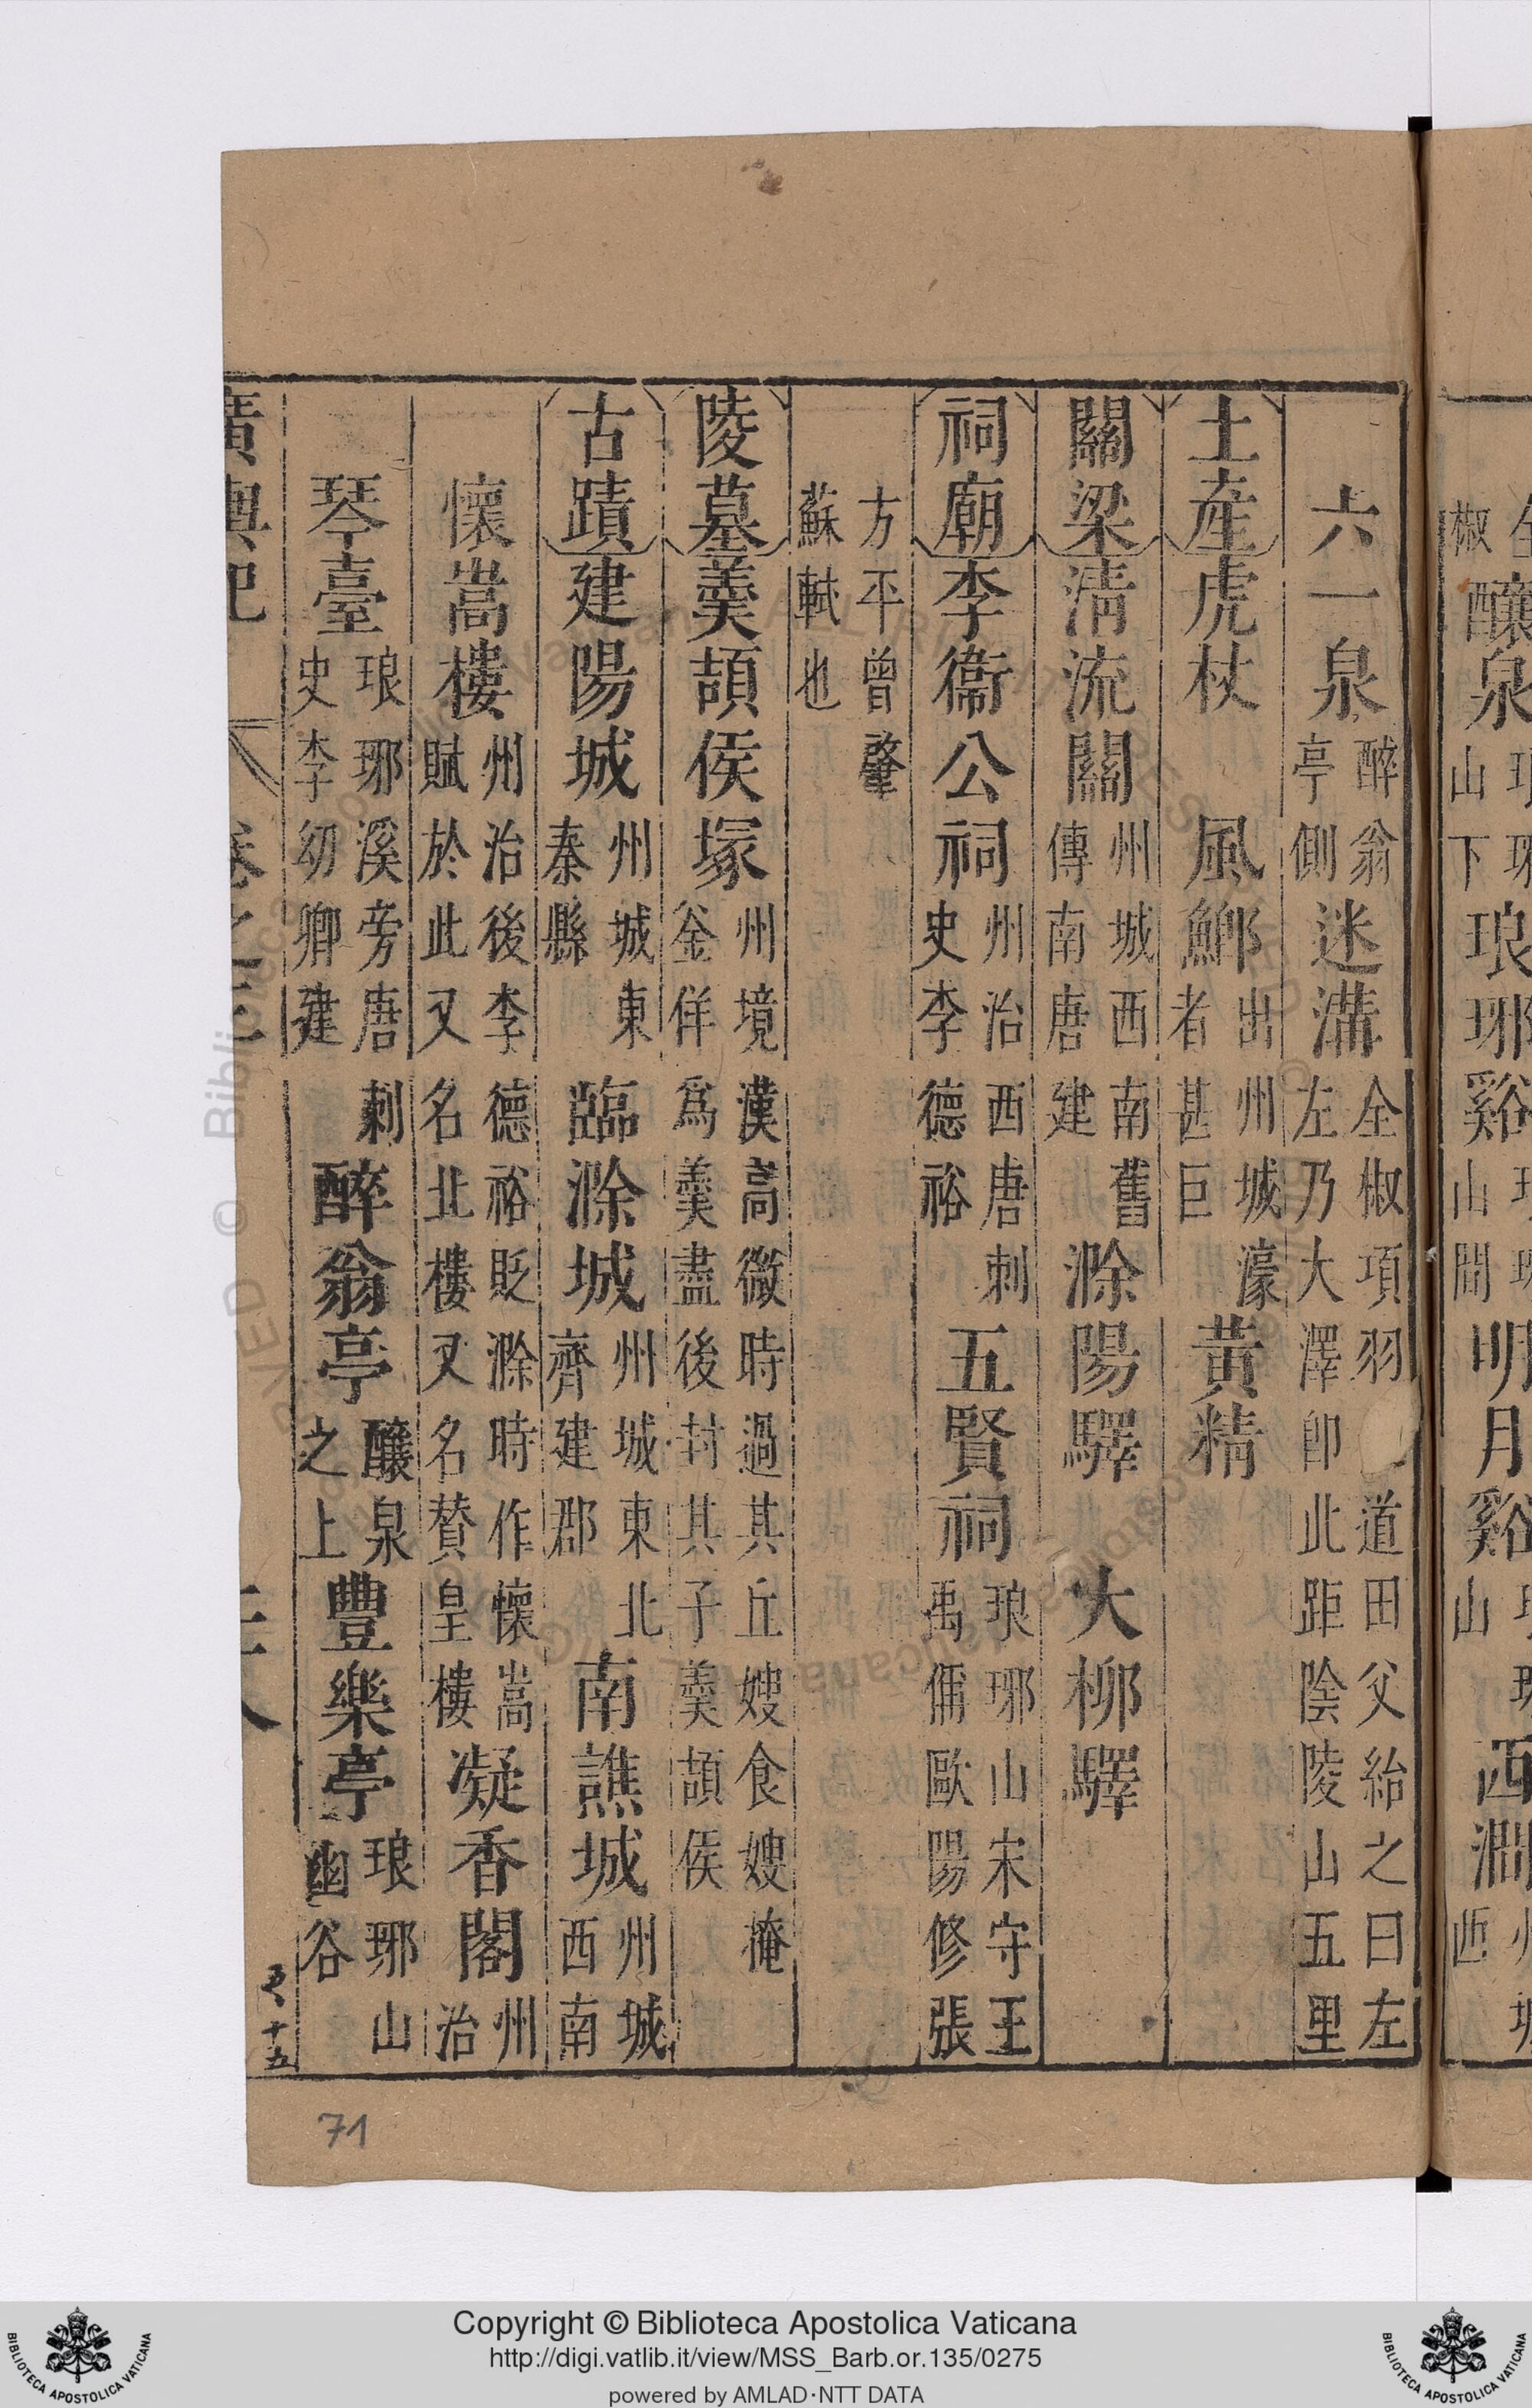 六一泉醉翁亭側迷溝全椒項羽道田父紿之曰左左乃大澤卽此距陰陵山五里
土產虎杖 風鄉出者州城濠甚巨黃精
關梁清流關州城西南舊傳南唐建滁陽驛 大柳驛
祠廟李衛公祠州治西唐刺史李德裕五賢祠琅琊山宋守王禹偁歐陽修張
方平曾肇蘇軾也
陵墓羹頡侯塚州境漢高微時過其丘嫂食嫂掩釜佯爲羹盡後封其子羹頡侯
古蹟建陽城州城東秦縣臨滁城州城東北齊建郡南譙城州城西南
懷嵩樓州治後李德裕貶滁時作懷嵩賦於此又名北樓又名贊皇樓凝香閣州治
琴臺琅琊溪旁唐刺史李幼卿建醉翁亭釀泉之上豐樂亭琅琊山幽谷
廣輿記 卷之三 二八
十五
71
釀泉
琅琊谿
山間
明月谿
山
西澗
Copyright © Biblioteca Apostolica Vaticana
http://digi.vatlib.it/view/MSS_Barb.or.135/0275
powered by AMLAD·NTT DATA
BIBLIOTECA APOSTOLICA VATICANA
BIBLIOTECA APOSTOLICA VATICANA